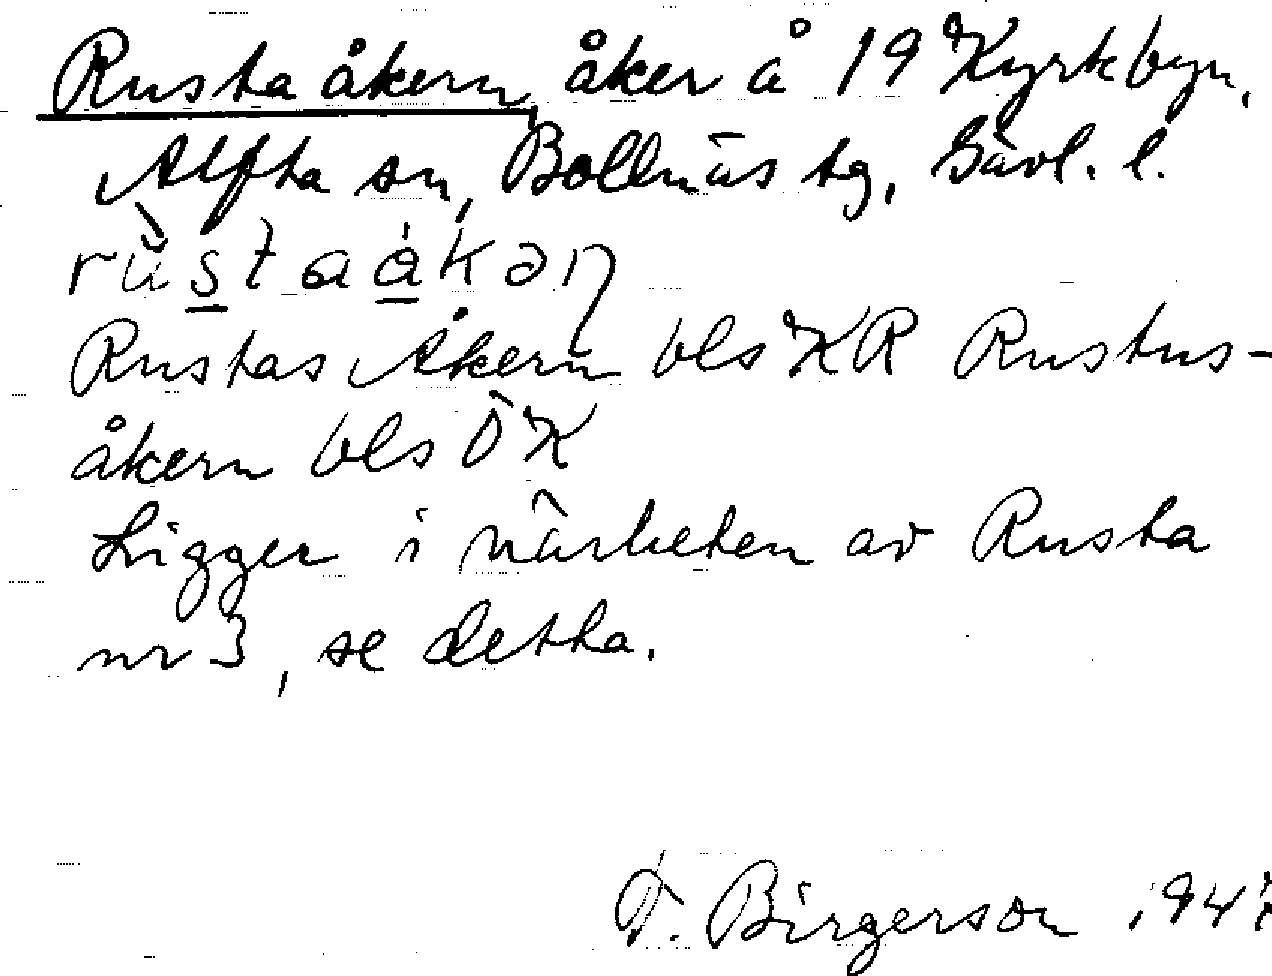 Rusta åkern, åker å 19 Kyrkbyn,
Alfta sn, Bollnäs tg, Gävl. l.
rùstaåkəṇ
Rustas Åkern bls KR Rustus-
åkern bls ÖK
Ligger i närheten av Rusta
nr 3, se detta.
Birgerson 1947